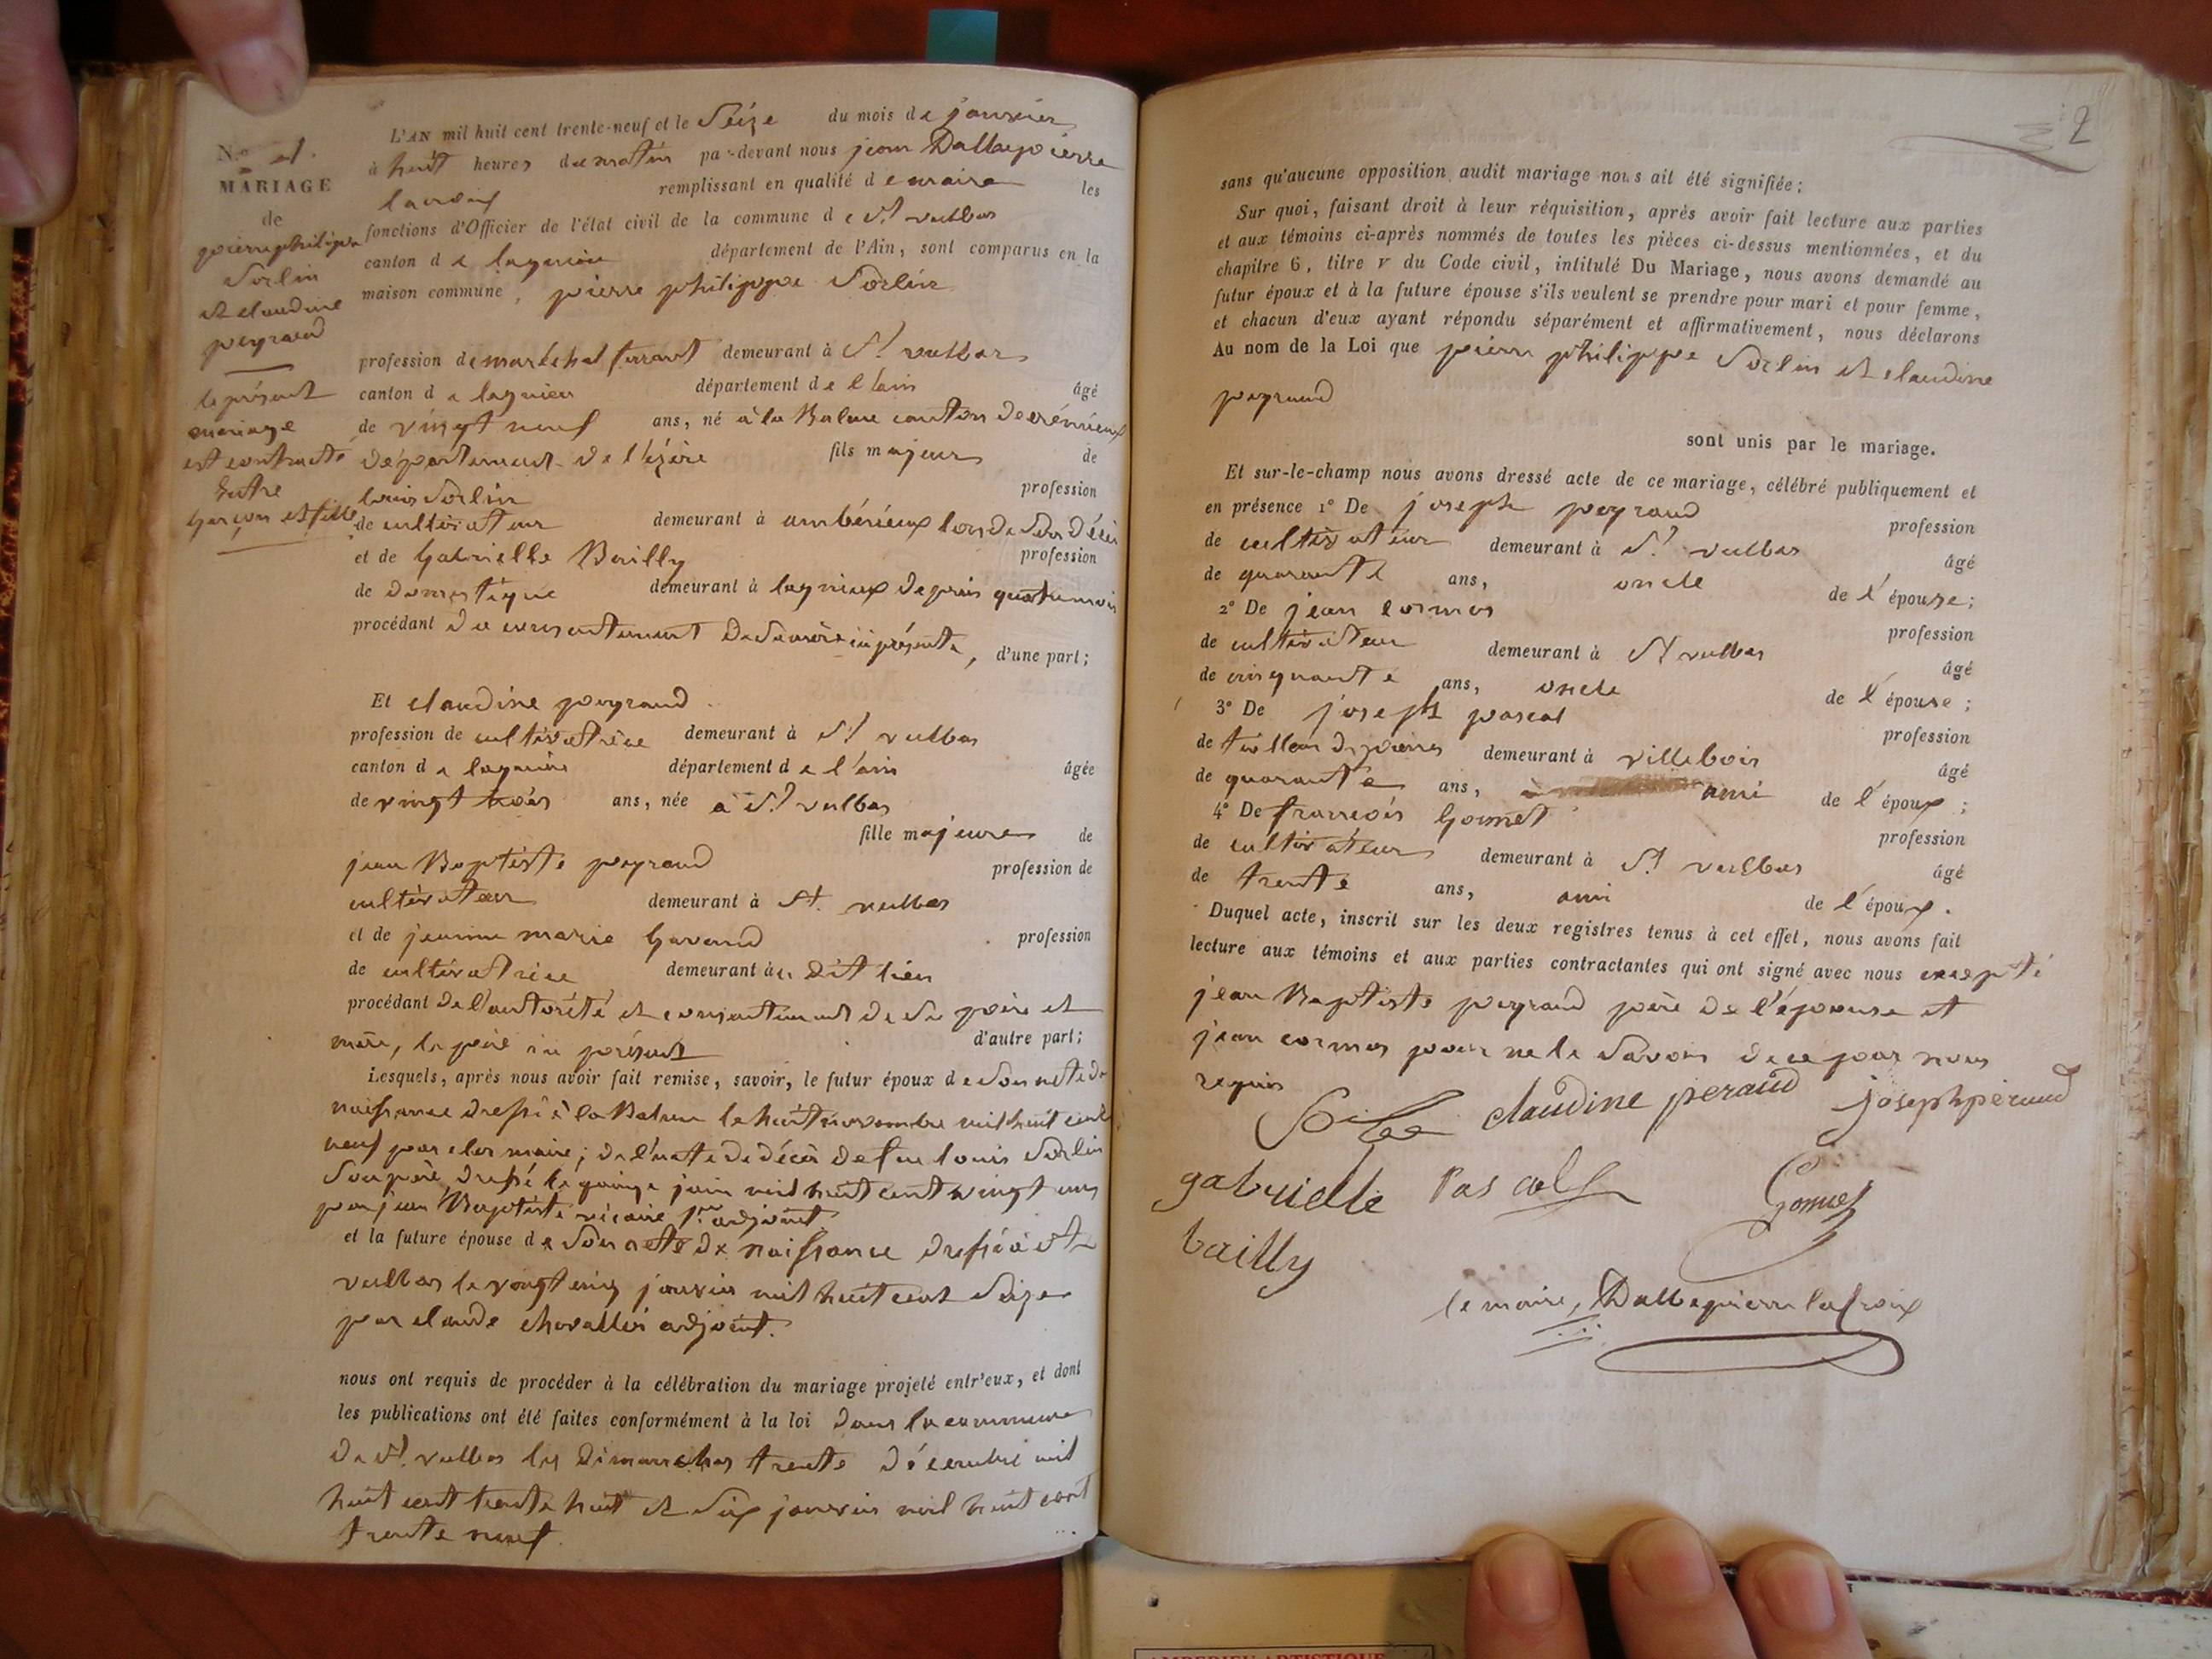 No 1.
MARIAGE
de
pierre philippe
Sorlin
et claudine
peyraud
le présent
mariage
est contracté
entre
garçon et fille
L'AN mil huit cent trente-neuf et le Seize du mois de janvier
à huit heures du matin par-devant nous jean Dallaspierre
lacroix remplissant en qualité de maire les
fonctions d'Officier de l'état civil de la commune de St vulbas
canton de lagnieu département de l'Ain, sont comparus en la
maison commune, pierre philippe Sorlin
profession de maréchal ferrant demeurant à St vulbas
canton de lagnieu département de l'ain âgé
de vingt neuf ans, né à la Balme canton de crémieux
département de l'izère fils majeur de
louis Sorlin profession
de cultivateur demeurant à ambérieux lors de son décès
et de Gabrielle Bailly profession
de domestique demeurant à lagnieux depuis quatre mois
procédant du consentement de sa mère ici présente, d'une part;
Et claudine peyraud
profession de cultivatrice demeurant à St vulbas
canton de lagnieu département de l'ain âgée
de vingt trois ans, née à St vulbas
fille majeure de
jean Baptiste peyraud profession de
cultivateur demeurant à St. vulbas
et de jeanne marie Gavand profession
de cultivatrice demeurant au dit lieu
procédant de l'autorité et consentement de ses père et
mère, le père ici présent d'autre part;
Lesquels, après nous avoir fait remise, savoir, le futur époux de son acte de
naissance dressé à la Balme le huit novembre mil huit cent
neuf par maire; de l'acte de décès de feu louis Sorlin
son père, dressé le quinze juin mil huit cent vingt un
par jean Baptiste 1er adjoint
et la future épouse de son acte de naissance dressé à St
vulbas le vingt cinq janvier mil huit cent Seize
par claude chevallier adjoint.
nous ont requis de procéder à la célébration du mariage projeté entr'eux, et dont
les publications ont été faites conformément à la loi dans la commune
de St. vulbas les dimanches trente décembre mil
huit cent trente huit et Six janvier mil huit cent
trente neuf.
2
sans qu'aucune opposition audit mariage nous ait été signifiée;
Sur quoi, faisant droit à leur réquisition, après avoir fait lecture aux parties
et aux témoins ci-après nommés de toutes les pièces ci-dessus mentionnées, et du
chapitre 6, titre V du Code civil, intitulé Du Mariage, nous avons demandé au
futur époux et à la future épouse s'ils veulent se prendre pour mari et pour femme,
et chacun d'eux ayant répondu séparément et affirmativement, nous déclarons
Au nom de la Loi que pierre philippe Sorlin et claudine
peyraud
sont unis par le mariage.
Et sur-le-champ nous avons dressé acte de ce mariage, célébré publiquement et
en présence 1° De joseph peyraud profession
de cultivateur demeurant à St vulbas âgé
de quarante ans, oncle de l'épouse;
2° De jean cormos profession
de cultivateur demeurant à St vulbas âgé
de cinquante ans, oncle de l'épouse;
3° De joseph pascal profession
de tailleur de pierres demeurant à villebois âgé
de quarante ans, ami de l'époux;
4° De françois Gomet profession
de cultivateur demeurant à St vulbas âgé
de trente ans, ami de l'époux.
Duquel acte, inscrit sur les deux registres tenus à cet effet, nous avons fait
lecture aux témoins et aux parties contractantes qui ont signé avec nous excepté
jean Baptiste peyraud père de l'épouse et
jean cormos pour ne le savoir de ce par nous
requis
claudine peraud joseph peraud
gabrielle Pascal Gomet
bailly
le maire, Dallaspierre lacroix
AMBERIEU ARTISTIQUE